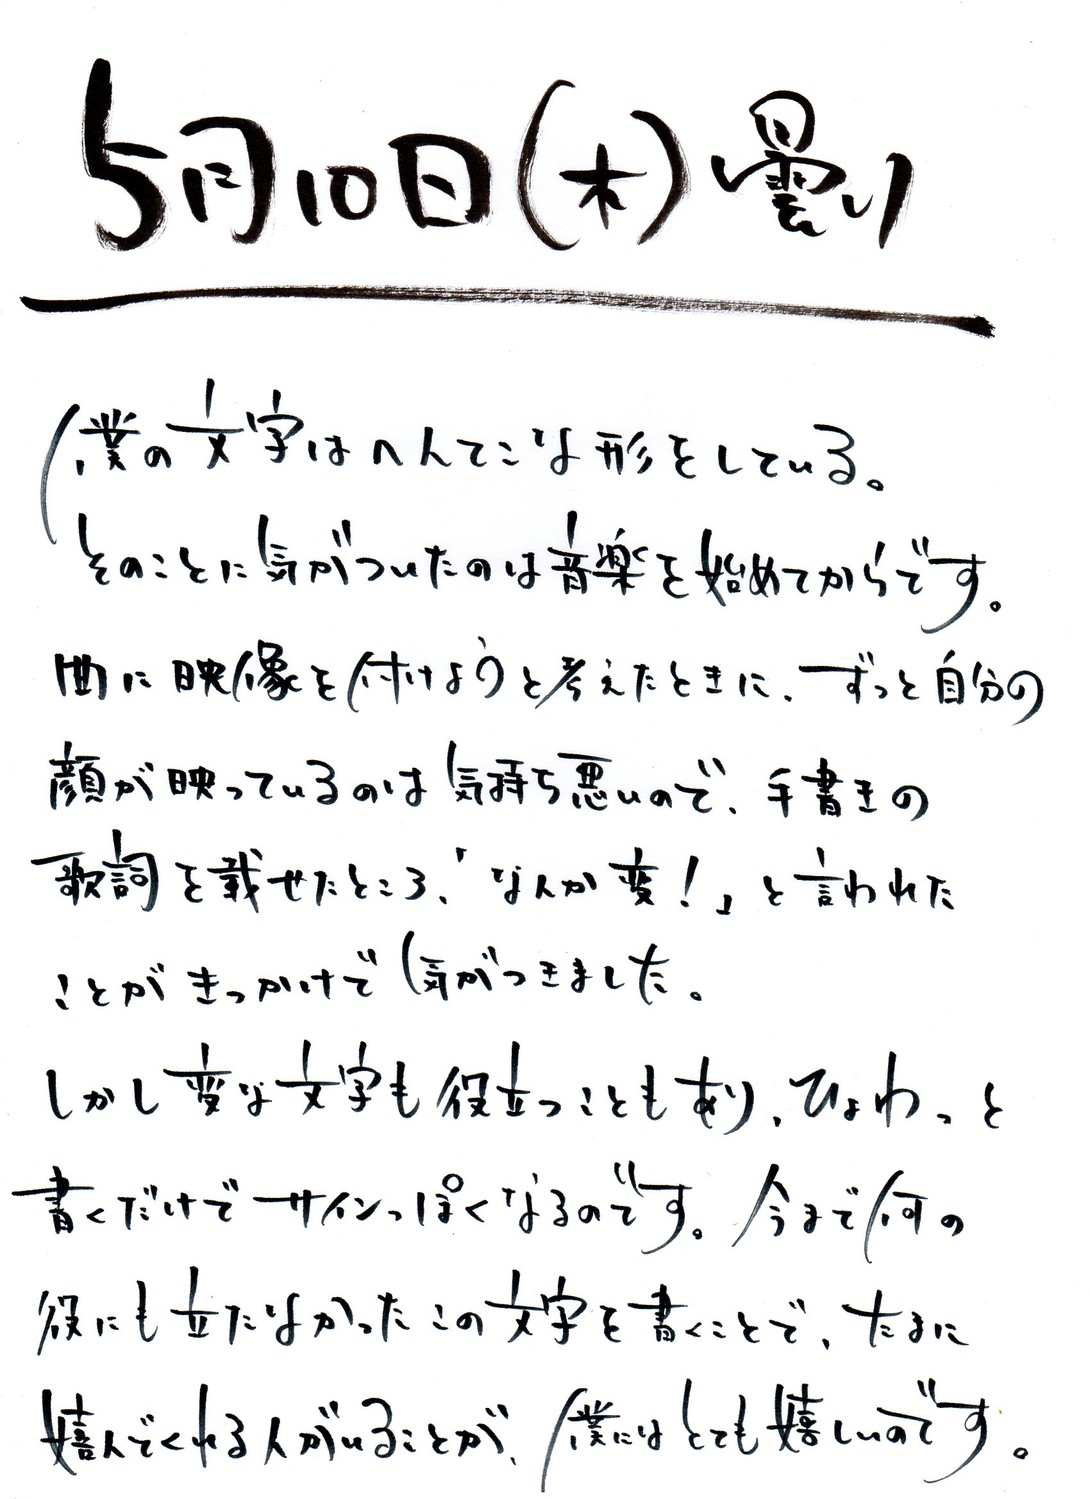 5月10日(木)曇り
僕の文字はへんてこな形をしている。
そのことに気がついたのは音楽を始めてからです。
曲に映像を付けようと考えたときに、ずっと自分の
顔が映っているのは気持ち悪いので、手書きの
歌詞を載せたところ、「なんか変!」と言われた
ことがきっかけで気がつきました。
しかし変な文字も役立つこともあり、ひょわっと
書くだけでサインっぽくなるのです。今まで何の
役にも立たなかったこの文字を書くことで、たまに
嬉んでくれる人がいることが、僕にはとても嬉しいのです。